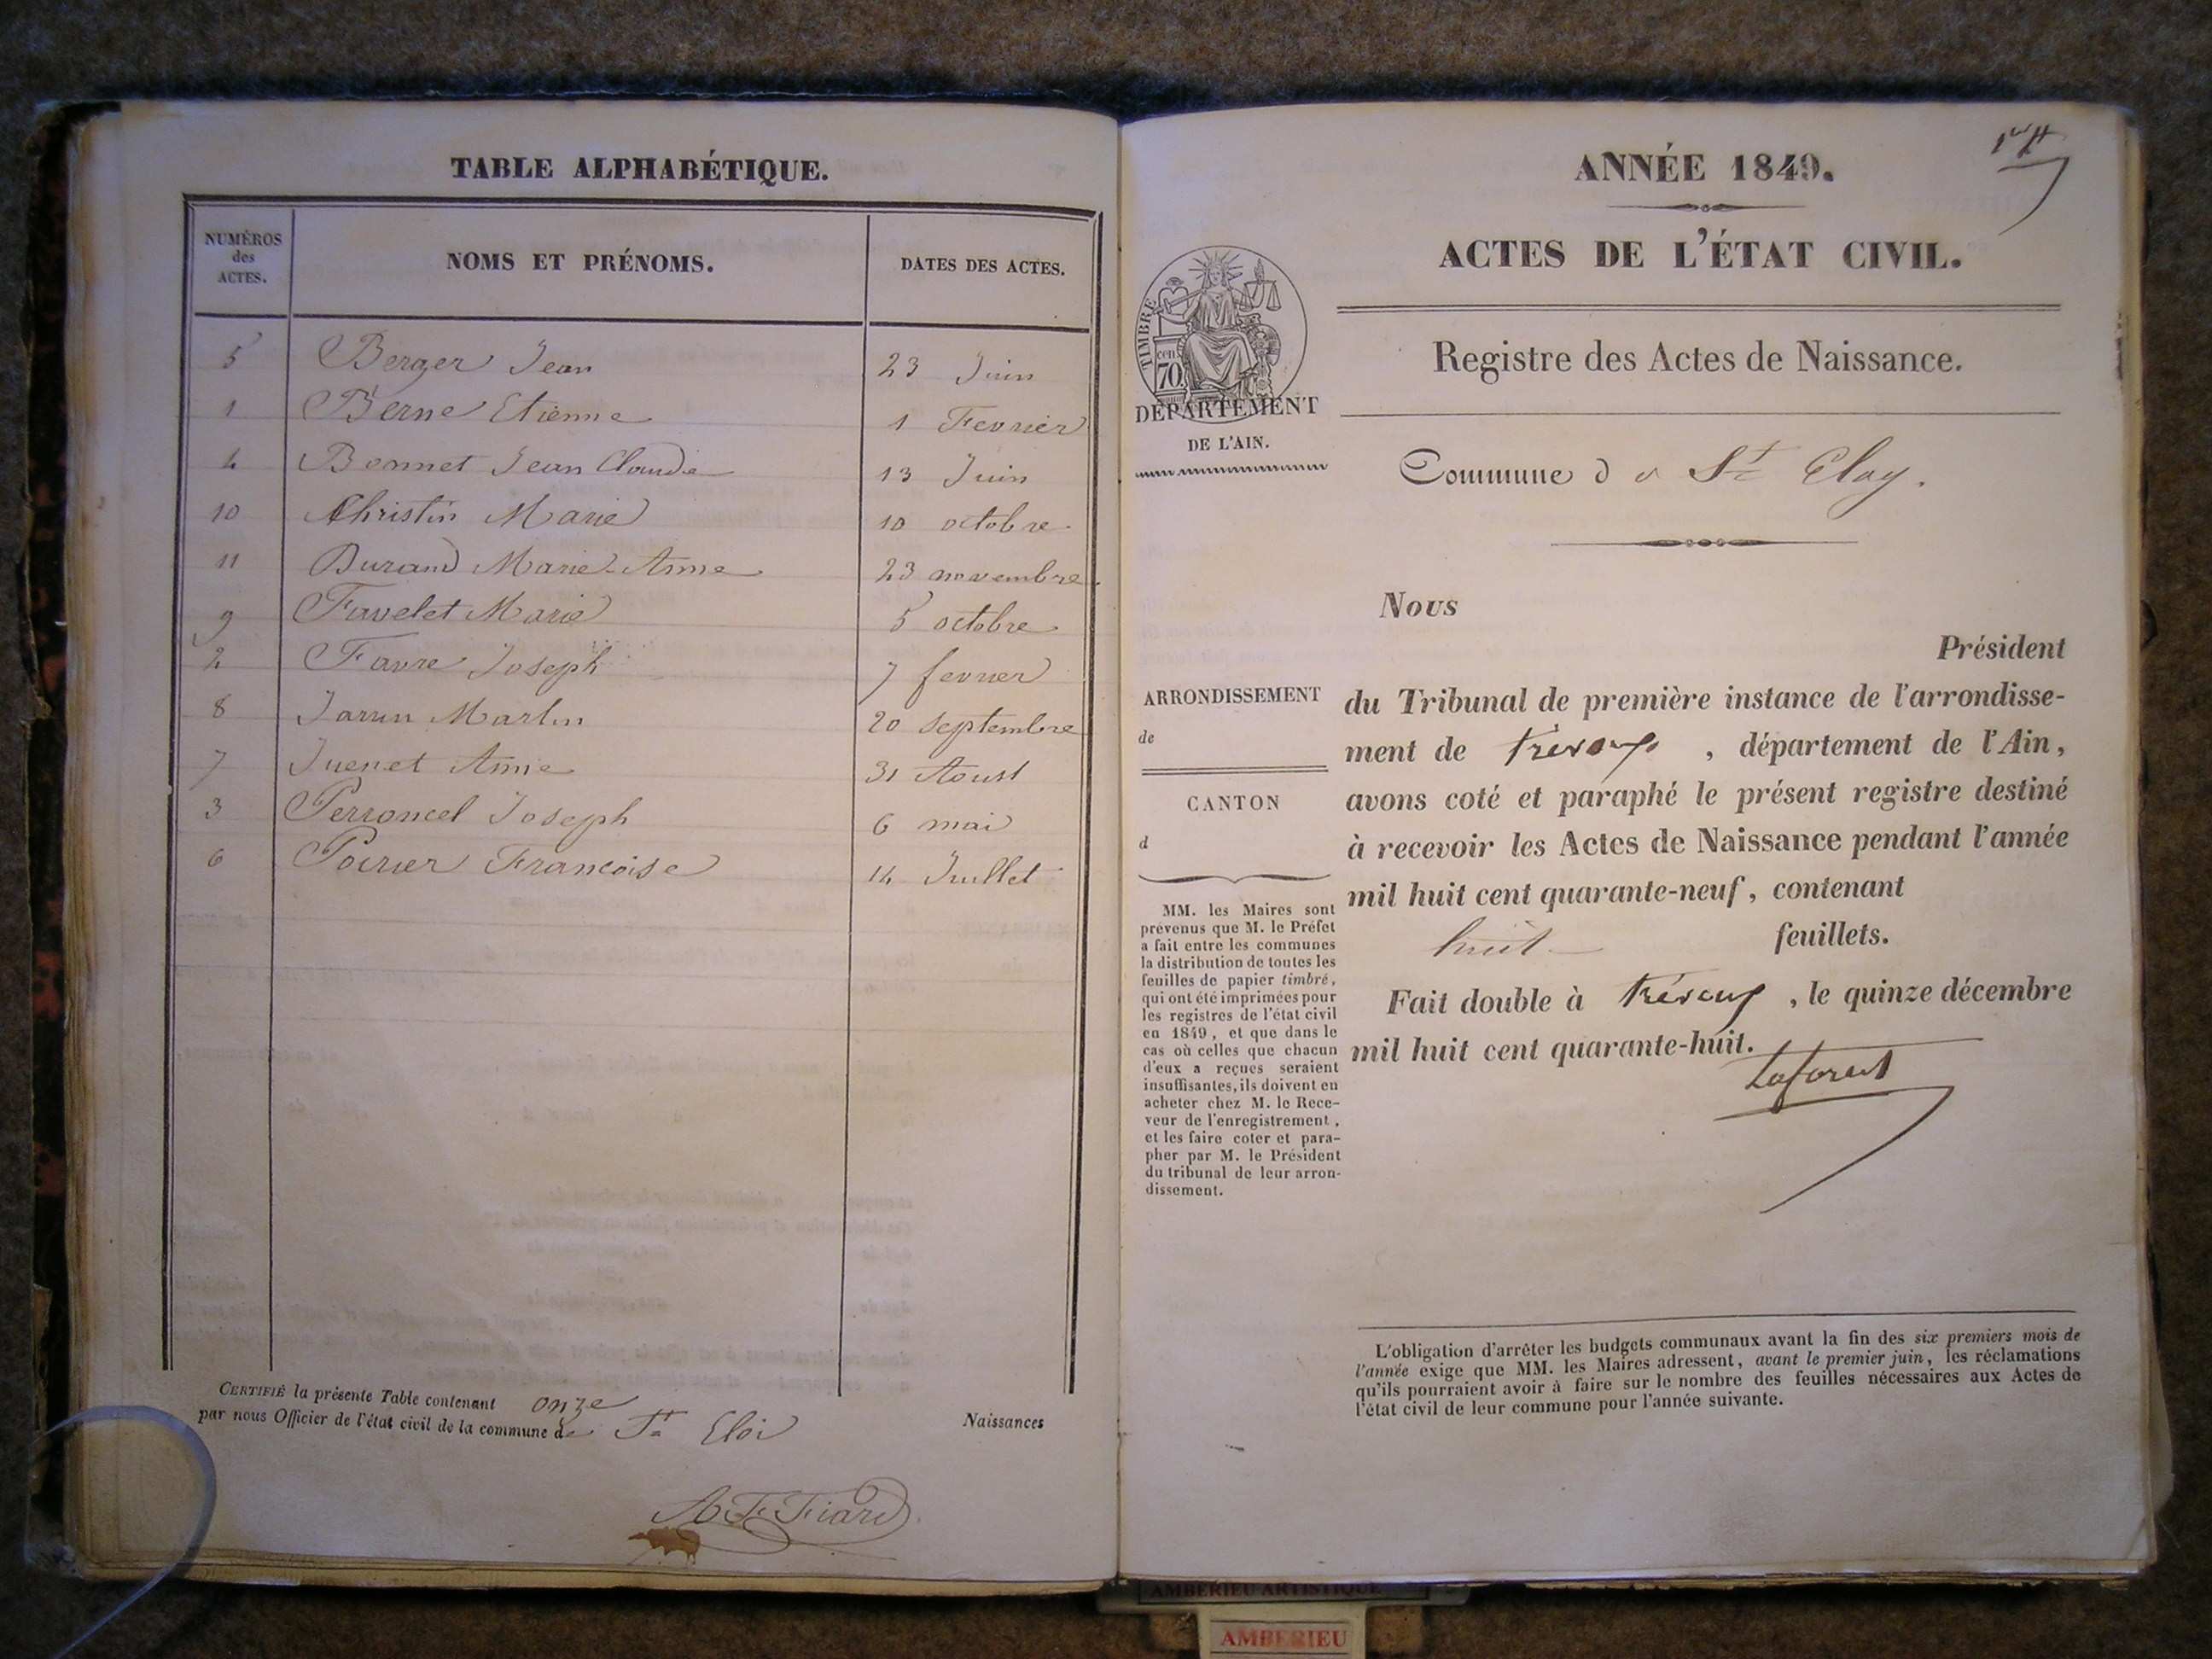 TABLE ALPHABÉTIQUE.
NUMÉROS des ACTES. NOMS ET PRÉNOMS. DATES DES ACTES.
5 Berger Jean 23 Juin
1 Berne Etienne 1 Fevrier
4 Bonnet Jean Claude 13 Juin
10 Christin Marie 10 octobre
11 Durand Marie Anne 23 novembre
9 Favelet Marie 5 octobre
2 Favre Joseph 7 fevrier
8 Martin 20 septembre
7 Juenet Anne 31 Aoust
3 Perroncel Joseph 6 mai
6 Poirier Francoise 14 Juillet
CERTIFIÉ la présente Table contenant onze Naissances
par nous Officier de l'état civil de la commune de St Eloi
A F Fiard
1er
ANNÉE 1849.
ACTES DE L'ÉTAT CIVIL.
Registre des Actes de Naissance.
TIMBRE
cen.
70
DÉPARTEMENT
DE L'AIN.
Commune de St Eloy.
Nous
Président
ARRONDISSEMENT
de
CANTON
d
du Tribunal de première instance de l'arrondisse-
ment de Trévoux, département de l'Ain,
avons coté et paraphé le présent registre destiné
à recevoir les Actes de Naissance pendant l'année
mil huit cent quarante-neuf, contenant
huit feuillets.
Fait double à Trévoux, le quinze décembre
mil huit cent quarante-huit.
Laforest
MM. les Maires sont
prévenus que M. le Préfet
a fait entre les communes
la distribution de toutes les
feuilles de papier timbré,
qui ont été imprimées pour
les registres de l'état civil
en 1849, et que dans le
cas où celles que chacun
d'eux a reçues seraient
insuffisantes, ils doivent en
acheter chez M. le Rece-
veur de l'enregistrement,
et les faire coter et para-
pher par M. le Président
du tribunal de leur arron-
dissement.
L'obligation d'arrêter les budgets communaux avant la fin des six premiers mois de
l'année exige que MM. les Maires adressent, avant le premier juin, les réclamations
qu'ils pourraient avoir à faire sur le nombre des feuilles nécessaires aux Actes de
l'état civil de leur commune pour l'année suivante.
AMBERIEU ARTISTIQUE
AMBERIEU